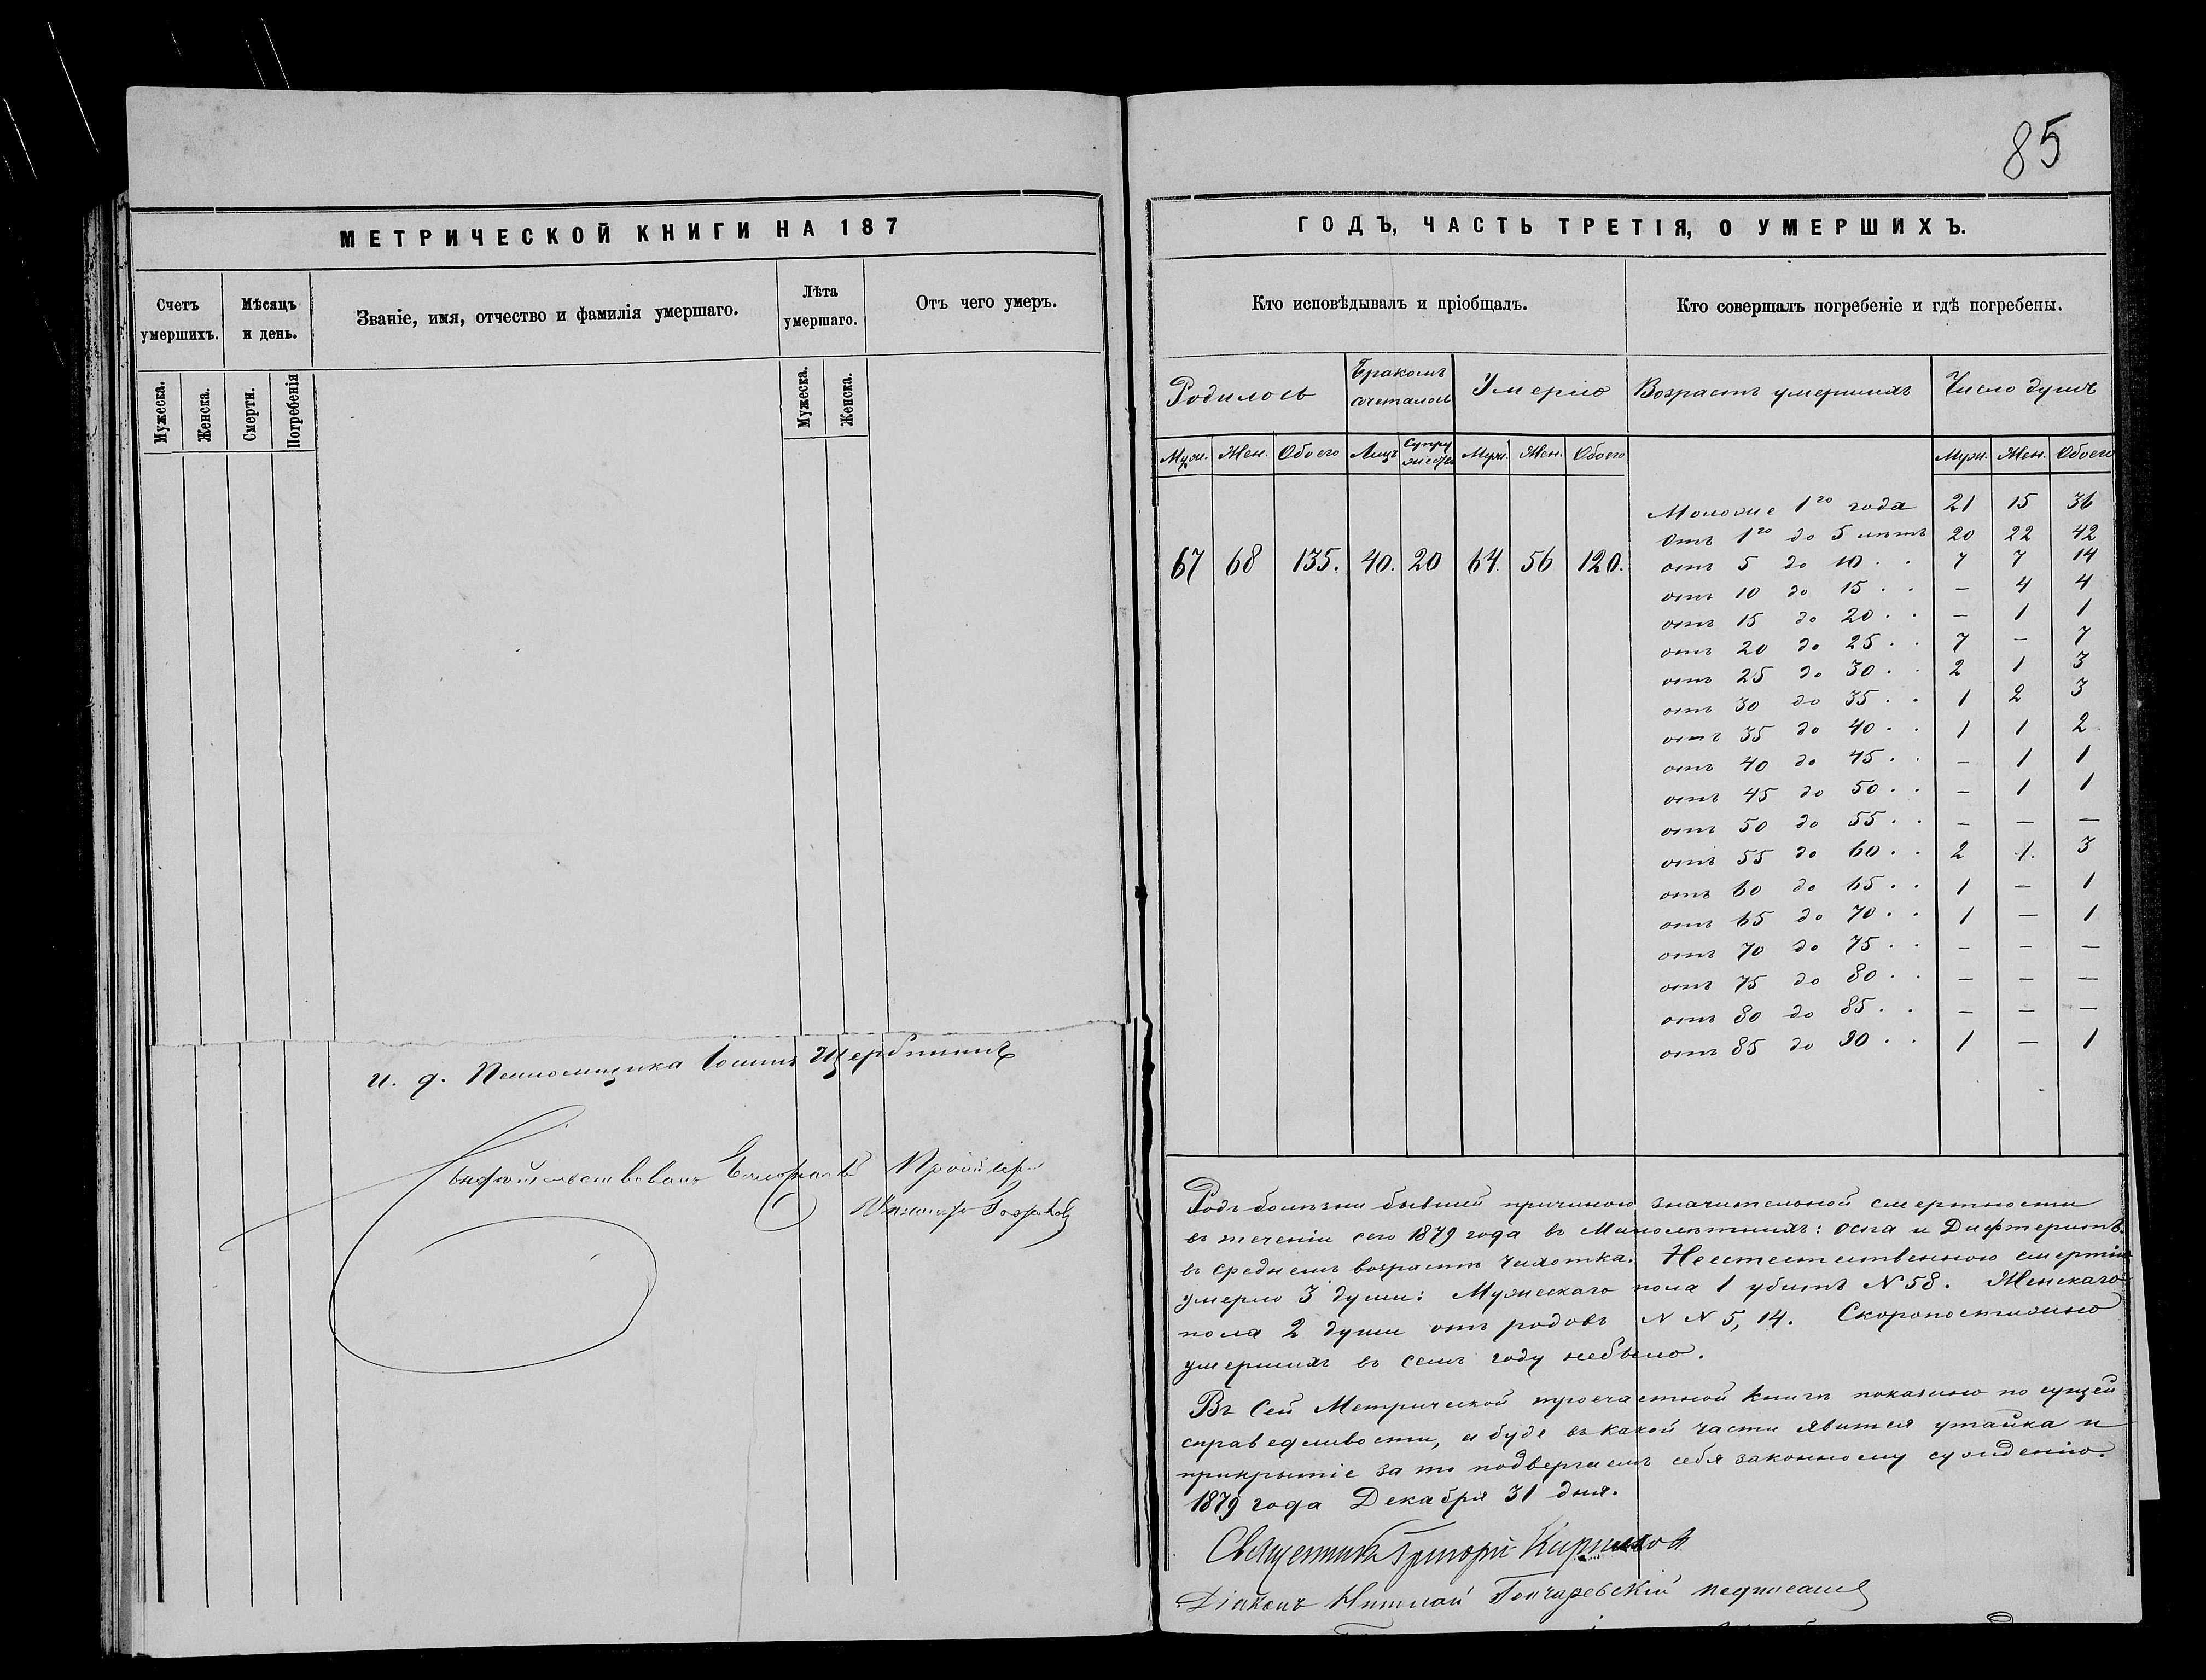 85
МЕТРИЧЕСКОЙ КНИГИ НА 187
Счетъ умершихъ.
Мѣсяцъ и день.
Званіе, имя, отчество и фамилія умершаго.
Лѣта умершаго.
Отъ чего умеръ.
Мужеска. Женска. Смерти. Погребенія Мужеска. Женска.
и. д. Псаломщика Іоаннъ Щербининъ
ГОДЪ, ЧАСТЬ ТРЕТІЯ, О УМЕРШИХЪ.
Кто исповѣдывалъ и пріобщалъ.
Кто совершалъ погребеніе и гдѣ погребены.
Родилось Бракомъ сочеталось Умерло Возрастъ умершихъ Число душъ
Муж. Жен. Обоего Лицъ Супружествъ Муж. Жен. Обоего Муж. Жен. Обоего
67 68 135. 40. 20 64. 56 120.
Моложе 1го года 21 15 36
Отъ 1го до 5 лѣтъ 20 22 42
отъ 5 до 10 . . 7 7 14
отъ 10 до 15 . . — 4 4
отъ 15 до 20 . . — 1 1
отъ 20 до 25 . . 7 — 7
отъ 25 до 30 . . 2 1 3
отъ 30 до 35 . . 1 2 3
отъ 35 до 40 . . 1 1 2
отъ 40 до 45 . . — 1 1
отъ 45 до 50 . . — 1 1
отъ 50 до 55 . . — — —
отъ 55 до 60 . . 2 1. 3
отъ 60 до 65 . . 1 — 1
отъ 65 до 70 . . 1 — 1
отъ 70 до 75 . . — — —
отъ 75 до 80 . . — — —
отъ 80 до 85 . . — — —
отъ 85 до 90 . . 1 — 1
Родъ болѣзни бывшей причиною значительной смертности
въ теченіи сего 1879 года въ Малолѣтнихъ: оспа и Дифтеритъ.
въ среднемъ возрастѣ Чахотка. Неестественною смертію
умерло 3 души: Мужескаго пола 1 убитъ N 58. Женскаго
пола 2 души отъ родовъ N N 5, 14. Скоропостижно
умершихъ въ семъ году небыло.
Въ Сей Метрической троечастной книгѣ показано по сущей
справедливости, а буде въ какой части явится утайка и
прикрытіе за то подвергаемъ себя законному сужденію.
1879 года Декабря 31 дня.
Священникъ Григорій Кирилловъ
Діаконъ Николай Гончаревскій подписался